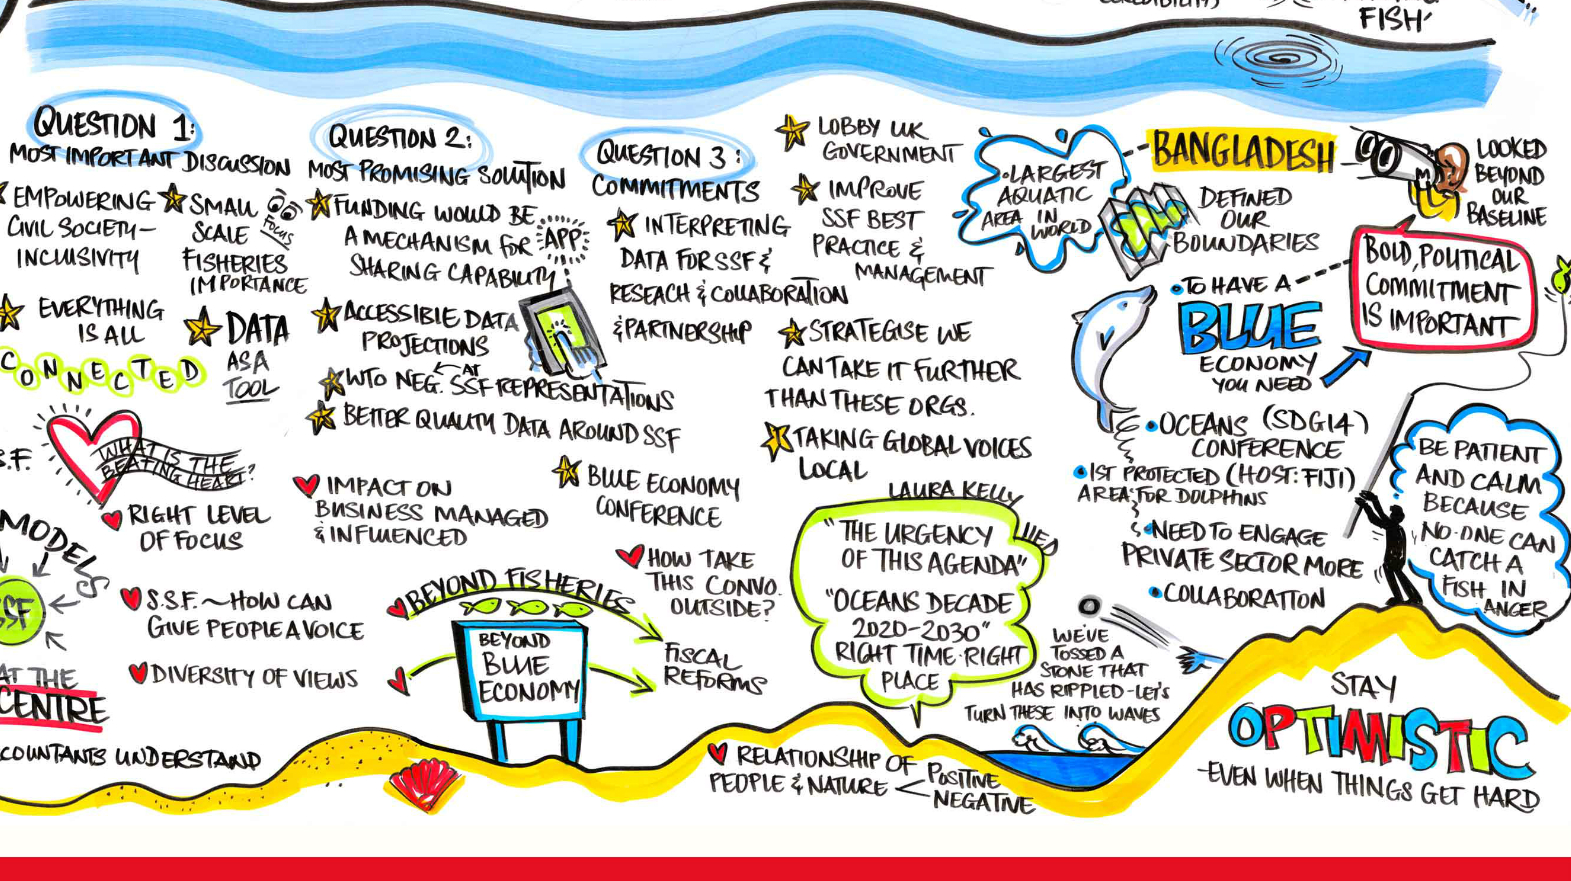 FISH'
QUESTION 1:
MOST IMPORTANT DISCUSSION
EMPOWERING
CIVIL SOCIETY-
INCLUSIVITY
SMALL
SCALE
FISHERIES
IMPORTANCE
FOCUS
EVERYTHING
IS ALL
CONNECTED
DATA
AS A
TOOL
WHAT IS THE
BEATING HEART?
S.F.
RIGHT LEVEL
OF FOCUS
MODELS
SSF
AT THE
CENTRE
S.S.F. ~ HOW CAN
GIVE PEOPLE A VOICE
DIVERSITY OF VIEWS
COUNTANTS UNDERSTAND
QUESTION 2:
MOST PROMISING SOLUTION
FUNDING WOULD BE
A MECHANISM FOR
SHARING CAPABILITY
APP
ACCESSIBLE DATA
PROJECTIONS
WTO NEG. SSF REPRESENTATIONS
AT
BETTER QUALITY DATA AROUND SSF
IMPACT ON
BUSINESS MANAGED
& INFLUENCED
BEYOND FISHERIES
BEYOND
BLUE
ECONOMY
FISCAL
REFORMS
QUESTION 3:
COMMITMENTS
INTERPRETING
DATA FOR SSF &
RESEACH & COLLABORATION
& PARTNERSHIP
BLUE ECONOMY
CONFERENCE
HOW TAKE
THIS CONVO.
OUTSIDE?
LOBBY UK
GOVERNMENT
IMPROVE
SSF BEST
PRACTICE &
MANAGEMENT
STRATEGISE WE
CAN TAKE IT FURTHER
THAN THESE ORGS.
TAKING GLOBAL VOICES
LOCAL
LAURA KELLY
IIED
"THE URGENCY
OF THIS AGENDA"
"OCEANS DECADE
2020-2030"
RIGHT TIME·RIGHT
PLACE
RELATIONSHIP OF
PEOPLE & NATURE
POSITIVE
NEGATIVE
BANGLADESH
•LARGEST
AQUATIC
AREA IN
WORLD
DEFINED
OUR
BOUNDARIES
LOOKED
BEYOND
OUR
BASELINE
•TO HAVE A
BLUE
ECONOMY
YOU NEED
BOLD, POLITICAL
COMMITMENT
IS IMPORTANT
•OCEANS (SDG14)
CONFERENCE
(HOST: FIJI)
•1ST PROTECTED
AREA FOR DOLPHINS
•NEED TO ENGAGE
PRIVATE SECTOR MORE
•COLLABORATION
WE'VE
TOSSED A
STONE THAT
HAS RIPPLED-LET'S
TURN THESE INTO WAVES
BE PATIENT
AND CALM
BECAUSE
NO-ONE CAN
CATCH A
FISH IN
ANGER
STAY
OPTIMISTIC
-EVEN WHEN THINGS GET HARD